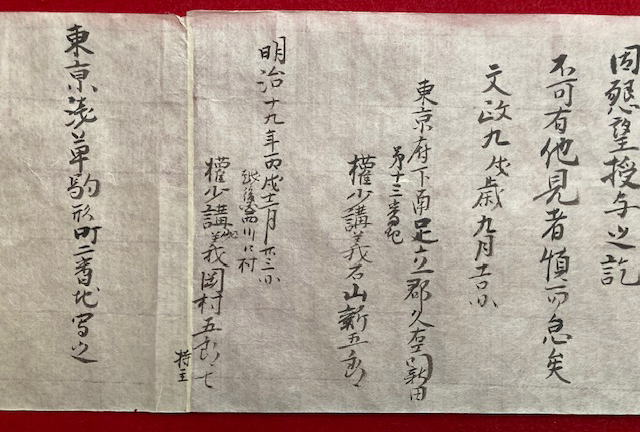 因懇望授与之訖
不可有他見者慎而怠矣
文政九戌歳九月吉日
東京府下南足立郡久右エ門新田
第十三番地
権少講義石山新五郎
明治十九年丙戌十二月廿三日
越後 川口村
権少講義岡村五郎七
持主
東京浅草駒形町二番地写之